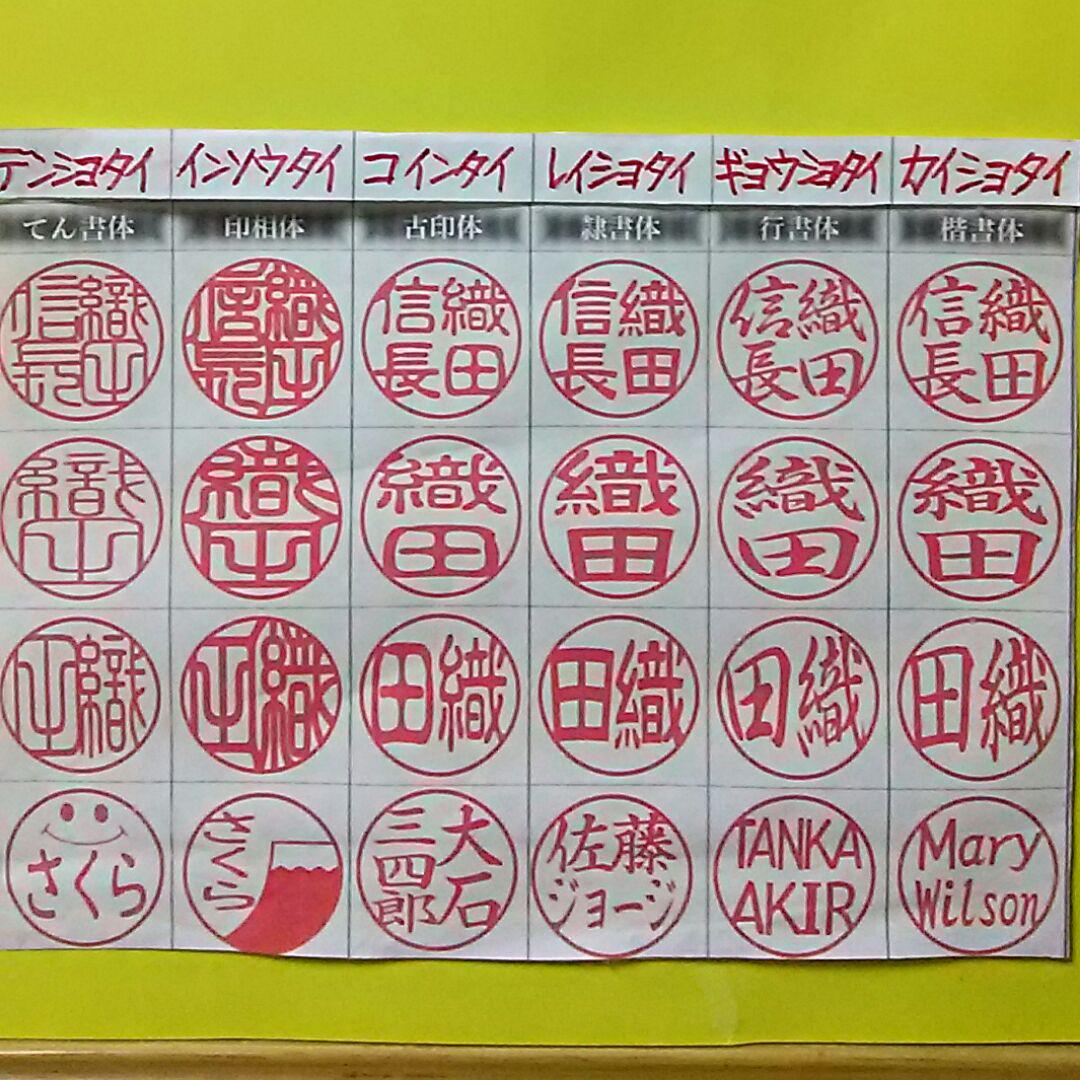 テンショタイ インソウタイ コインタイ レイショタイ ギョウショタイ カイショタイ
てん書体 印相体 古印体 隷書体 行書体 楷書体
織田信長 織田信長 織田信長 織田信長 織田信長 織田信長
織田 織田 織田 織田 織田 織田
織田 織田 織田 織田 織田 織田
さくら
さくら
大石
三四郎
佐藤
ジョージ
TANKA
AKIR
Mary
Wilson